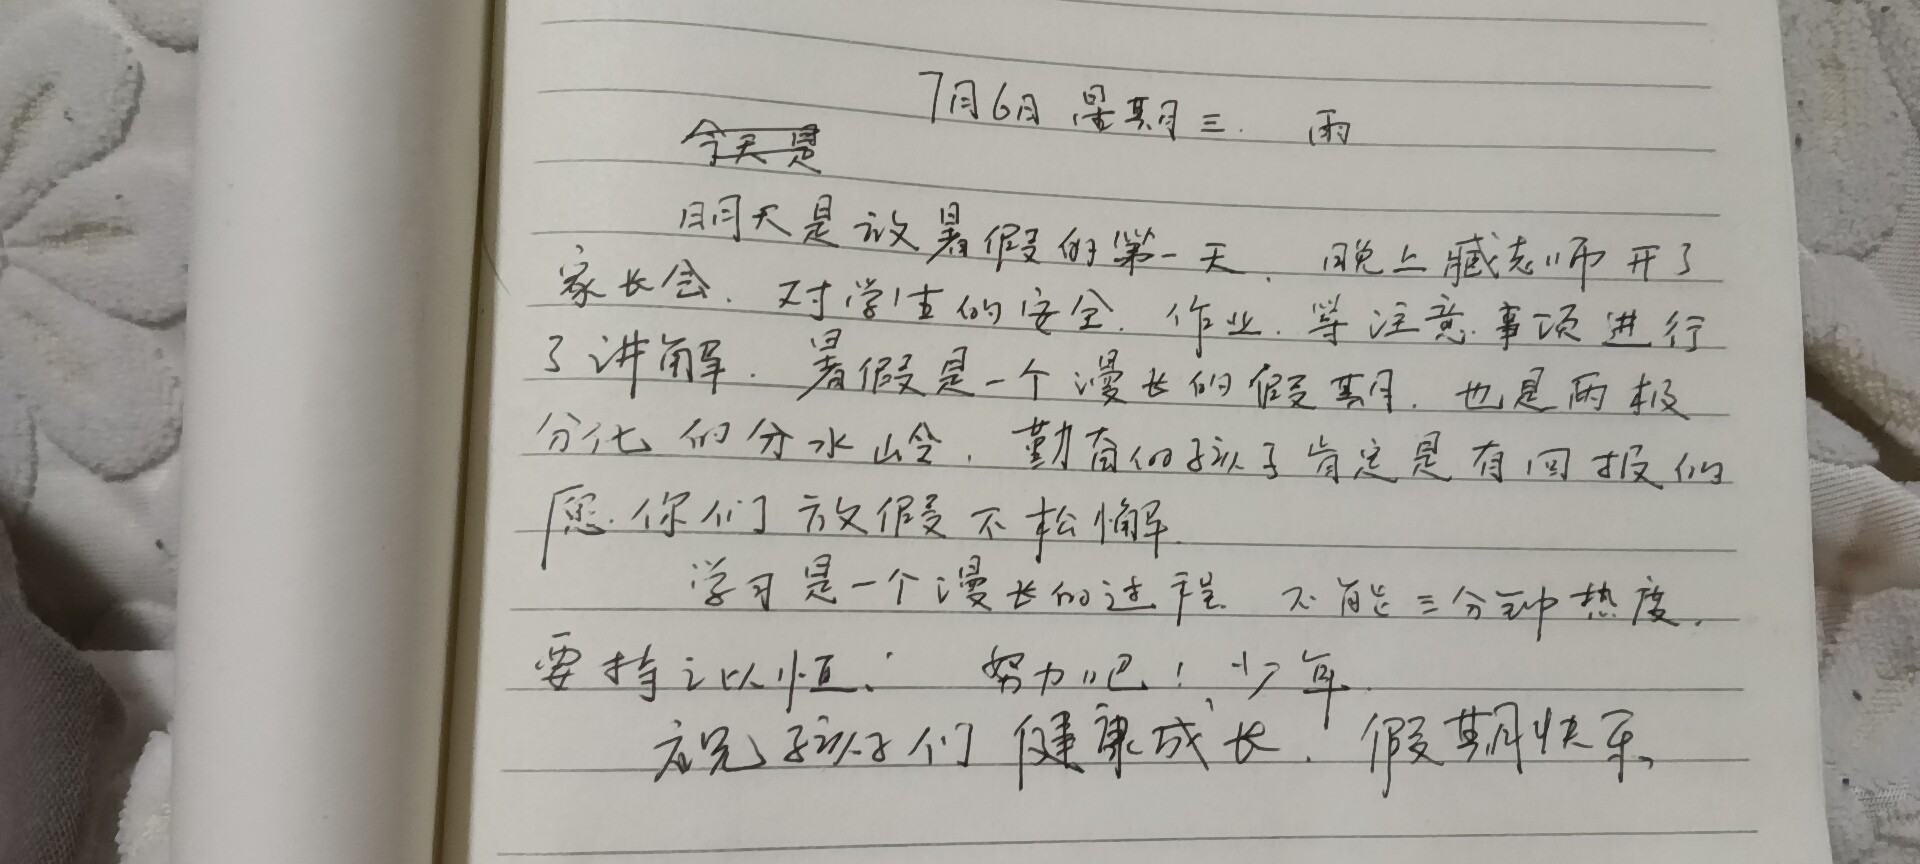 7月6日 星期三. 雨
今天是
明天是放暑假的第一天. 晚上臧老师开了
家长会. 对学生的安全. 作业. 等注意事项进行
了讲解. 暑假是一个漫长的假期. 也是两极
分化的分水岭. 勤奋的孩子肯定是有回报的
愿你们放假不松懈.
学习是一个漫长的过程 不能三分钟热度.
要持之以恒. 努力吧! 少年.
祝孩子们健康成长. 假期快乐、